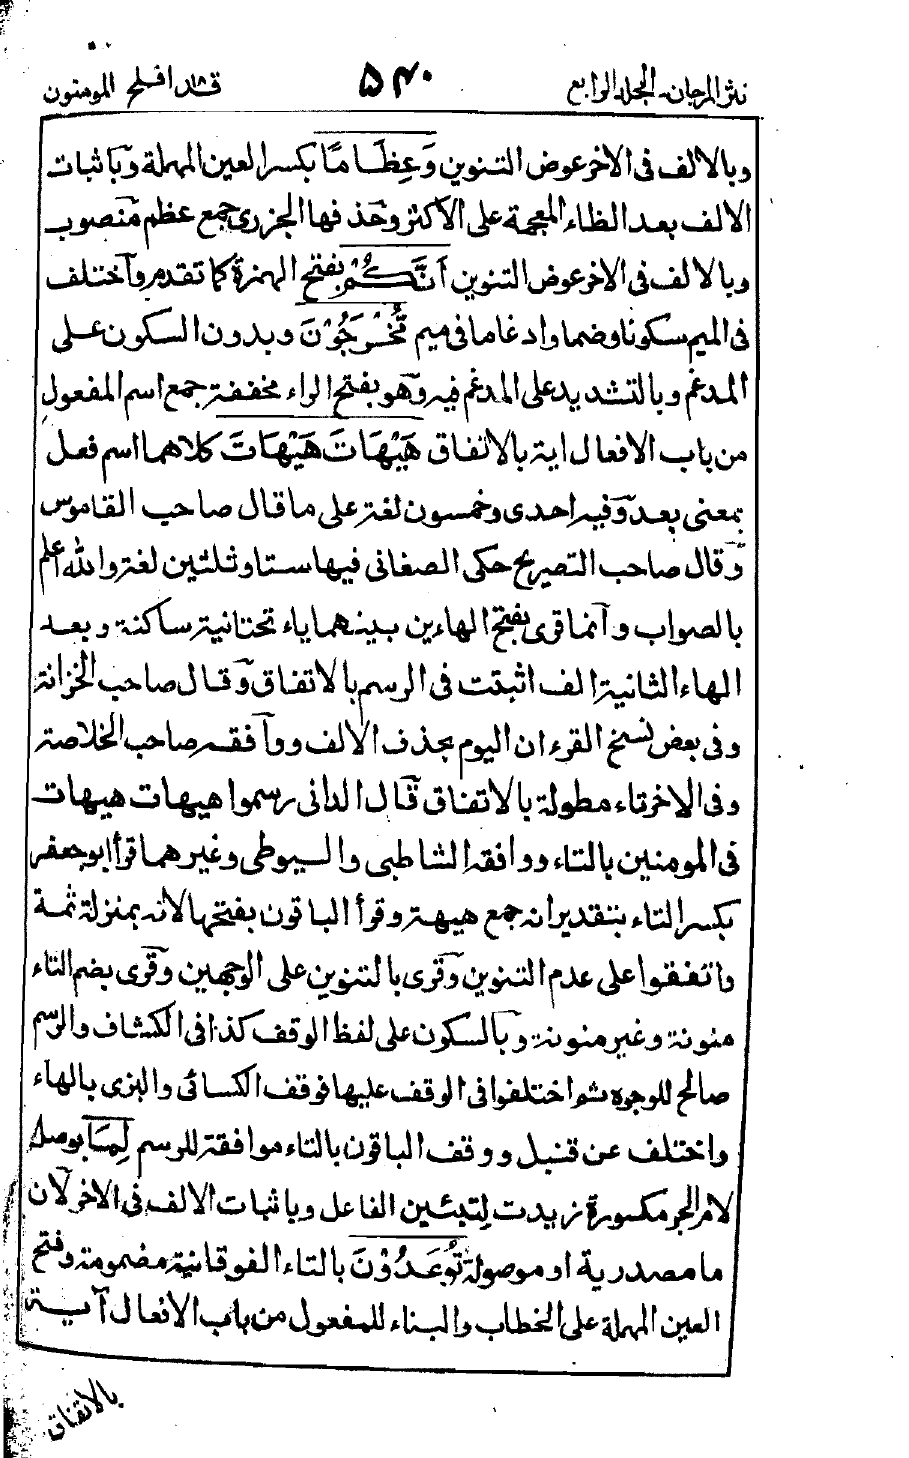 نثر المرجان۔ المجلد الرابع
۵۴۰
قد افلح ۱۸ المومنون
وبالالف فى الاخر عوض التنوين وَعِظَامًا بكسر العين المهملة وبَاثبات
الالف بعد الظاء المعجمة على الاكثر وحذفها الجزرى جمع عظم منصوب
وبالالف فى الاخر عوض التنوين اَنَّكُمْ بفتح الهمزة كما تقدم وآختلف
فى الميم سكونا وضما وادغاما فى ميم مُّخْرَجُوْنَ وبدون السكون على
المدغم وبالتشديد على المدغم فيه وهو بفتح الراء مخففة جمع اسم المفعول
من باب الافعال اية بالاتفاق هَيْهَاتَ هَيْهَاتَ كلاهما اسم فعل
بمعنى بعد وَفيه احدى وخمسون لغة على ما قال صاحب القاموس
وَقال صاحب التصريح حكى الصغانى فيها ستا وثلثين لغة والله اعلم
بالصواب وآنما قرى بفتح الهاءين بينهما ياء تحتانية ساكنة وبعد
الهاء الثانية الف اثبتت فى الرسم بالاتفاق وَقال صاحب الخزانة
وفى بعض نسخ القرءان اليوم بحذف الالف ووآفقه صاحب الخلاصة
وفى الاخر تاء مطولة بالاتفاق قَال الدانى رسموا هيهات هيهات
فى المومنين بالتاء ووافقه الشاطبى والسيوطى وغيرهما قرأ ابو جعفر
بكسر التاء بتقدير انه جمع هيهة وقرأ الباقون بفتحها لانه بمنزلة ثمة
واتفقوا على عدم التنوين وَقرى بالتنوين على الوجهين وَقرى بضم التاء
منونة وغير منونة وبَالسكون على لفظ الوقف كذا فى الكشاف والرسم
صالح للوجوه ثم اختلفوا فى الوقف عليها فوقف الكسائى والبزى بالهاء
واختلف عن قنبل ووقف الباقون بالتاء موافقة للرسم لِمَا بوصل
لام الجر مكسورة زيدت لتبئين الفاعل وباثبات الالف فى الاخر لان
ما مصدرية او موصولة تُوْعَدُوْنَ بالتاء الفوقانية مضمومة وفتح
العين المهملة على الخطاب والبناء للمفعول من باب الافعال آية
بالاتفاق